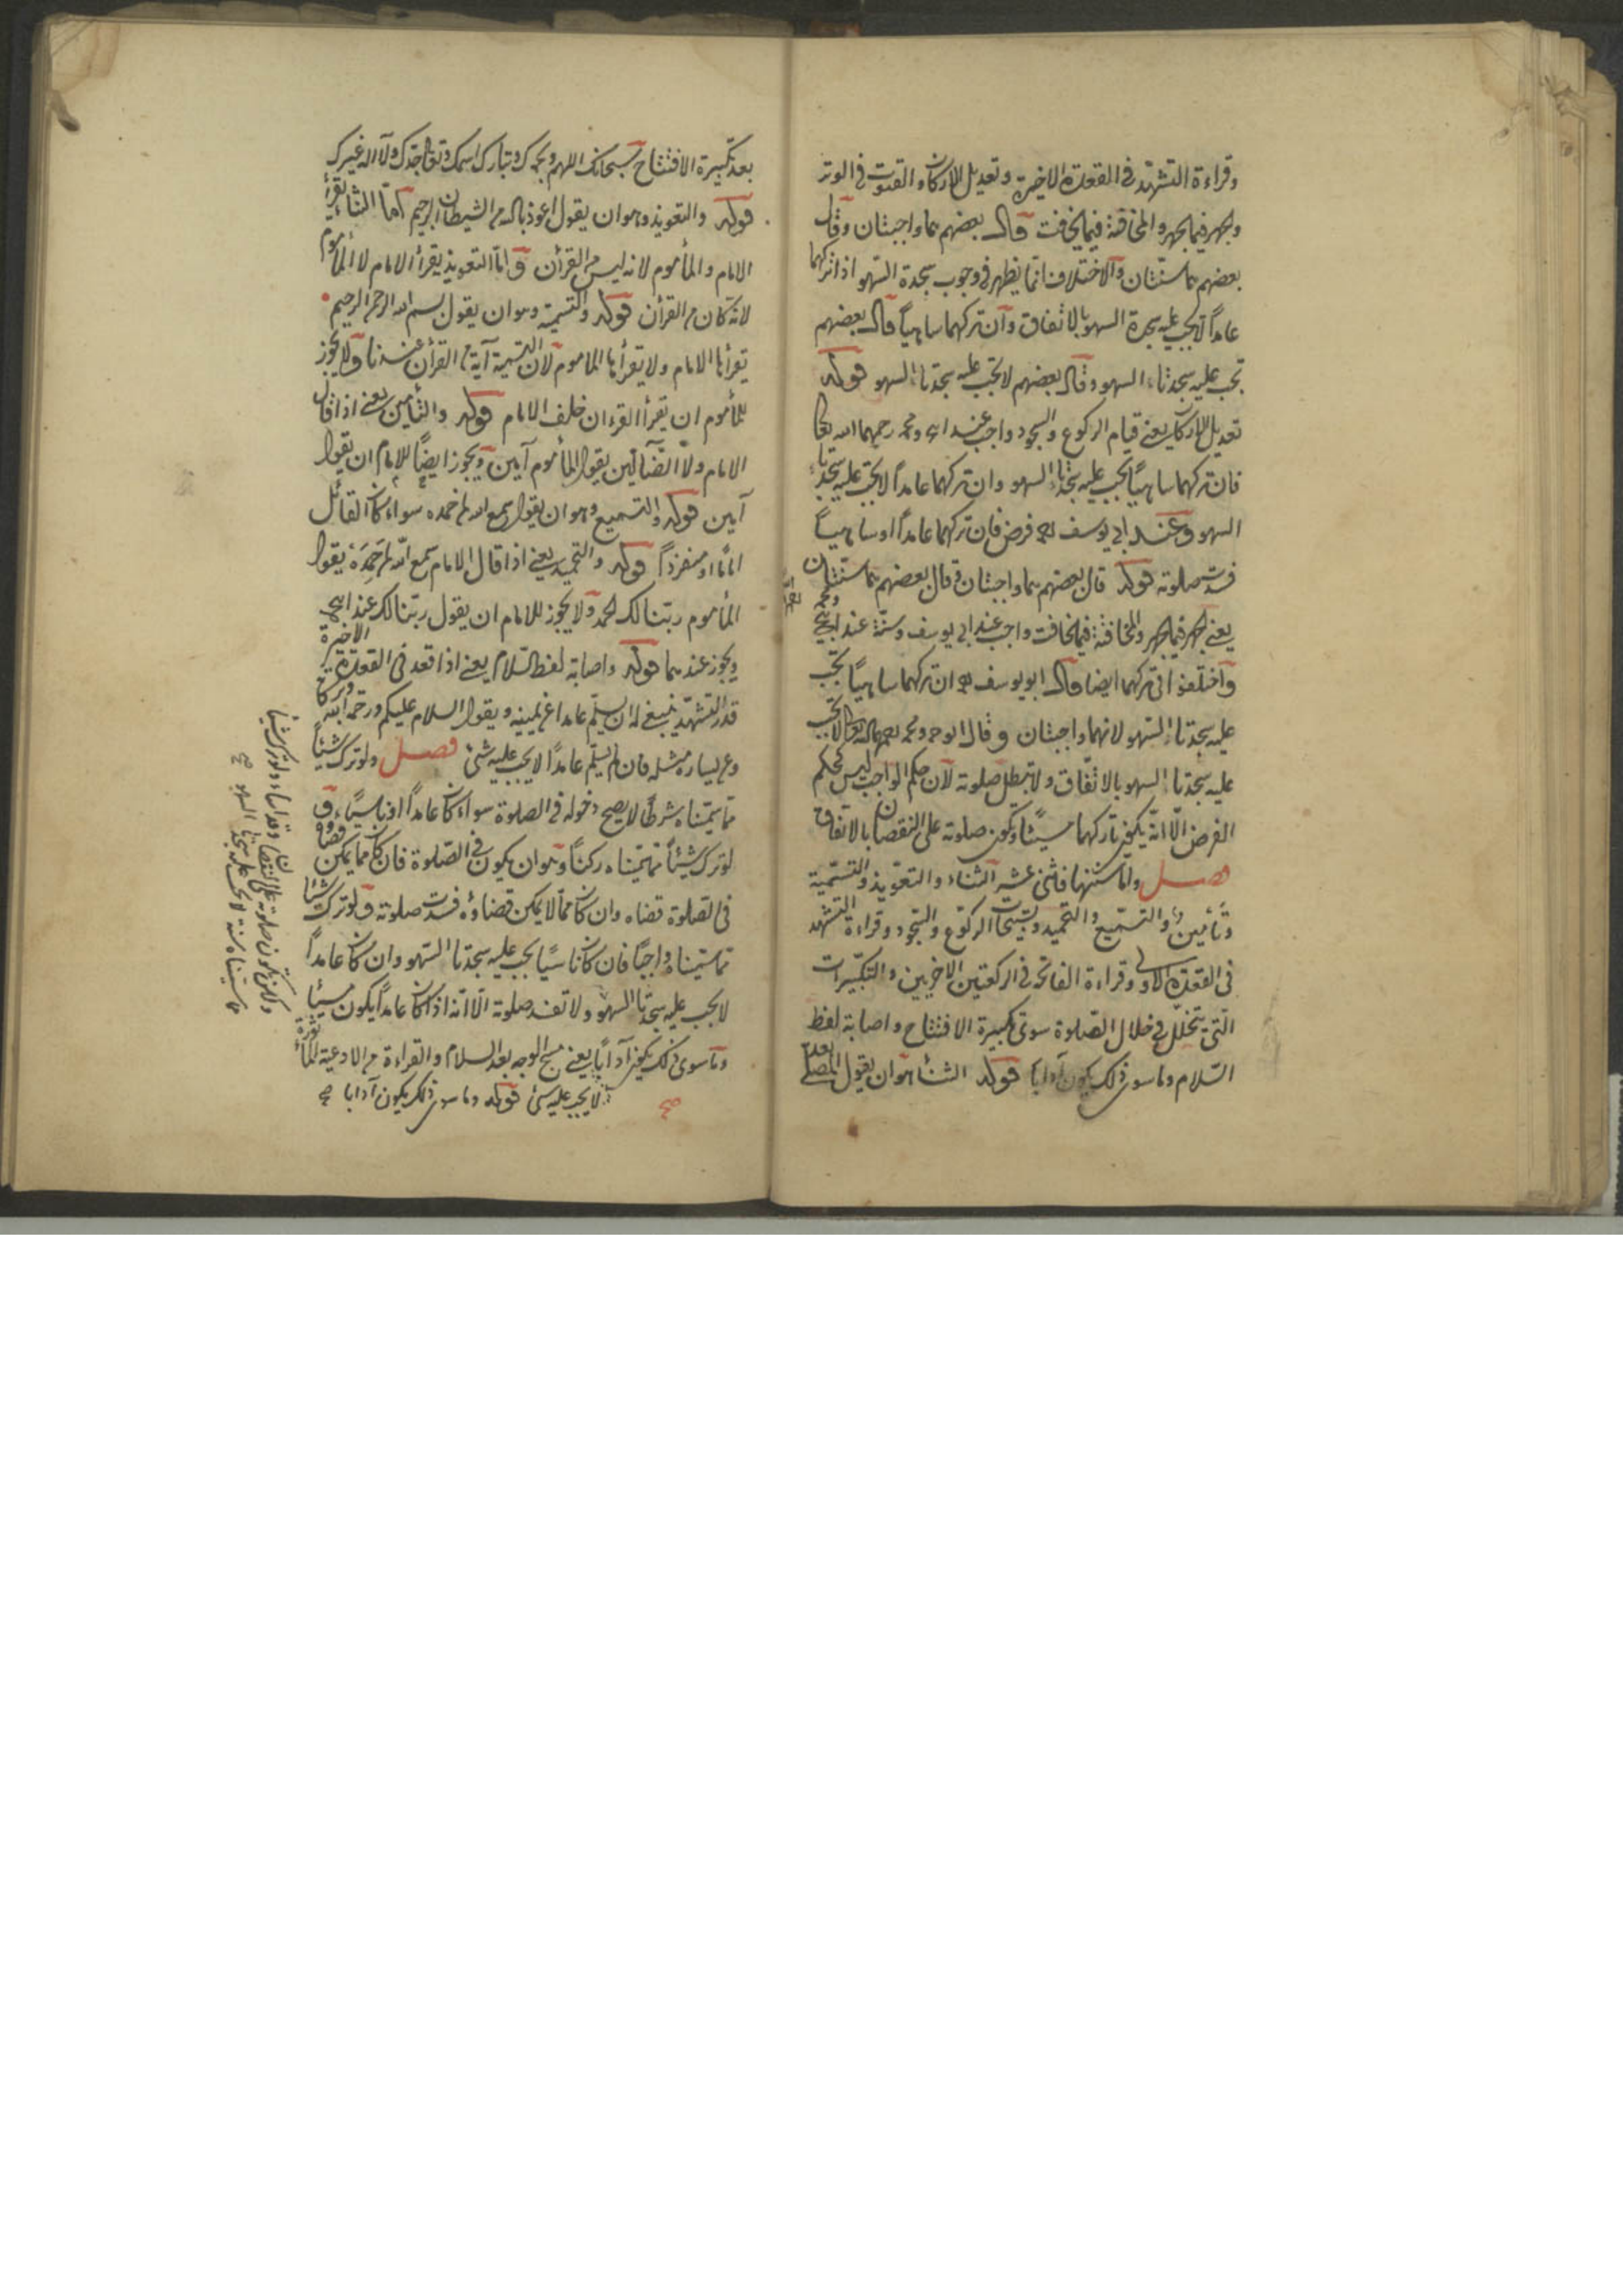 وقراءة التشهد فى القعدة الاخيرة وتعديل الاركان والقنوت فى الوتر
والجهر فيما يجهر والمخافتة فيما يخافت قال بعضهم هما واجبتان وقال
بعضهم هما سنتان والاختلاف انما يظهر فى وجوب سجدة السهو اذا تركهما
عامداً لا يجب عليه سجدة السهو بالاتفاق وان تركهما ساهياً قال بعضهم
تجب عليه سجدتا السهو وقال بعضهم لا تجب عليه سجدتا السهو قوله
تعديل الاركان يعنى قيام الركوع والسجود واجب عند ابى ومحمد رحمهما الله تعالى
فان تركهما ساهياً يجب عليه سجدتا السهو وان تركهما عامداً لا يجب عليه سجدتا
السهو وعند ابى يوسف فرض فان تركهما عامداً او ساهياً
فسدت صلوته قوله قال بعضهم هما واجبتان وقال بعضهم هما سنتان
يعنى الجهر فيما يجهر والمخافتة فيما يخافت واجب عند ابى يوسف وسنة عند ابى ح ومحمد
واختلفوا فى تركهما ايضا قال ابو يوسف ان تركهما ساهياً تجب
عليه سجدتا السهو لانهما واجبتان وقال ابو ح ومحمد رحمهما الله تعالى لا تجب
عليه سجدتا السهو بالاتفاق ولا تبطل صلوته لان حكم الواجب ليس كحكم
الفرض الا انه يكون تاركهما مسيئا ويكون صلوته على النقصان بالاتفاق
فصل واما سننها فاثنى عشر الثناء والتعويذ والتسمية
وتأمين والتسميع والتحميد وتسبيحات الركوع والسجود وقراءة التشهد
فى القعدة الاولى وقراءة الفاتحة فى الركعتين الاخريين والتكبيرات
التى يتخلل فى خلال الصلوة سوى تكبيرة الافتتاح واصابة لفظ
السلام وما سوى ذلك يكون آدابا قوله الثناء هو ان يقول المصلى بعد
بعد تكبيرة الافتتاح سبحانك اللهم وبحمدك وتبارك اسمك وتعالى جدك ولا اله غيرك
قوله والتعويذ وهو ان يقول اعوذ بالله من الشيطان الرجيم اما الثناء يقرأ
الامام والمأموم لانه ليس من القرأن واما التعويذ يقرأ الامام لا المأموم
لانه كان من القرأن قوله والتسمية وهو ان يقول بسم الله الرحمن الرحيم
يقرأها الامام ولا يقرأها المأموم لان التسمية آية من القرأن عندنا ولا يجوز
للمأموم ان يقرأ القرءان خلف الامام قوله والتأمين يعنى اذا قال
الامام ولا الضآلين يقول المأموم آمين ويجوز ايضاً للامام ان يقول
آمين قوله والتسميع وهو ان يقول سمع الله لمن حمده سواء كان القائل
اماماً او منفرداً قوله والتحميد يعنى اذا قال الامام سمع الله لمن حمده يقول
المأموم ربنا لك الحمد ولا يجوز للامام ان يقول ربنا لك عند ابى ح
ويجوز عندهما قوله واصابة لفظ السلام يعنى اذا قعد فى القعدة الاخيرة
قدر التشهد ينبغى له ان يسلم عامدا عن يمينه ويقول السلام عليكم ورحمة الله وبركاته
وعن يساره مثله فان لم يسلم عامداً لا يجب عليه شئ فصل ولو ترك شيئاً
مما سميناه شرطاً لا يصح دخوله فى الصلوة سواء كان عامداً او ناسياً و
لو ترك شيئاً مما سميناه ركناً وهو ان يكون فى الصلوة فان كان مما يمكن قضاؤه
فى الصلوة قضاه وان كان مما لا يمكن قضاؤه فسدت صلوته ولو ترك شيئا
مما سميناه واجباً فان كان ناسياً يجب عليه سجدتا السهو وان كان عامداً
لا يجب عليه سجدتا السهو ولا تفسد صلوته الا انه اذا كان عامداً يكون مسيئا
وما سوى ذلك يكون آداباً يعنى مسح الوجه بعد السلام والقراءة من الادعية المأثورة
لا يجب عليه شئ قوله وما سوى ذلك يكون آدابا صح
صح
ولكن تكون صلوته على النقصان وقد اساء ولو ترك شيئا
مما سميناه سنة لا يجب عليه سجدتا السهو صح